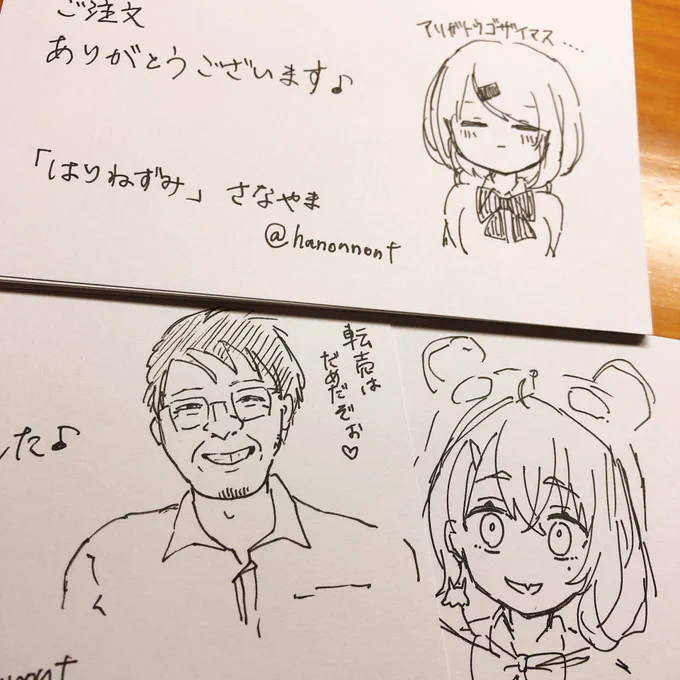 ご注文
ありがとうございます♪
アリガトウゴザイマス....
「はりねずみ」 さなやま
@hanonnont
転売は
だめだぞお♡
した♪